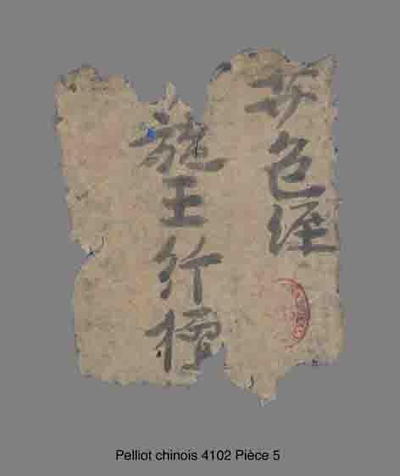 女色經
施王行檀
Pelliot chinois 4102 Pièce 5